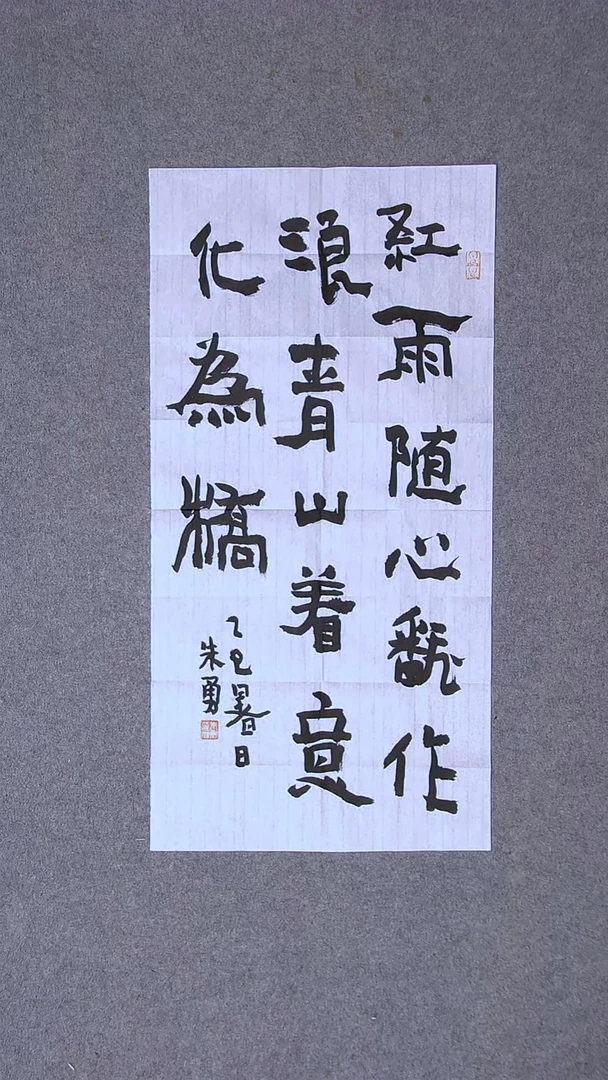 紅雨随心翻作
浪青山着意
化為橋
乙巳暑日
朱勇